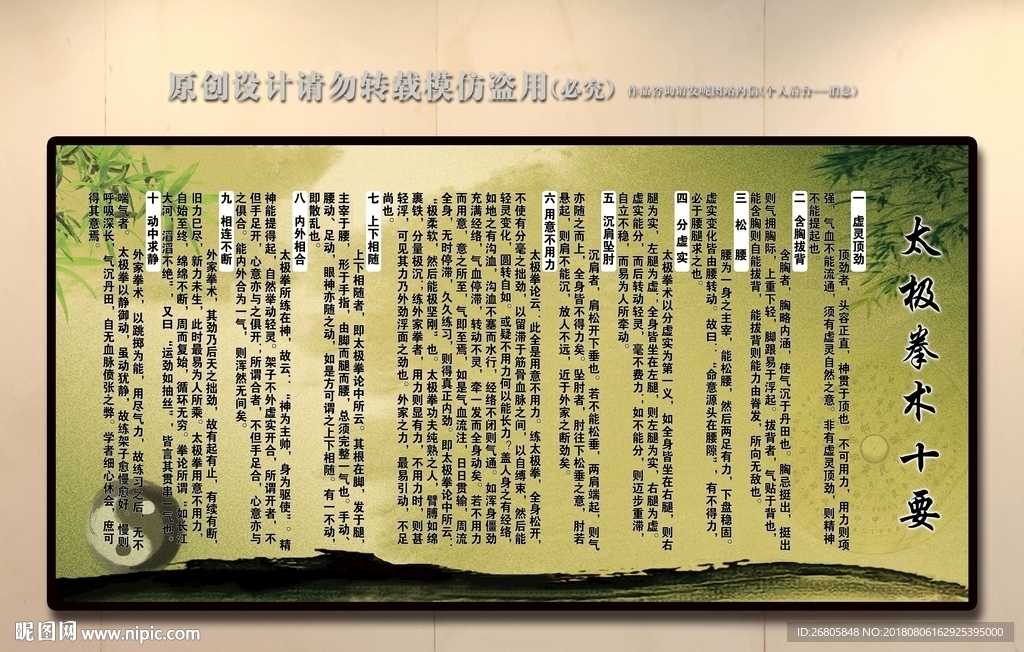 原创设计请勿转载模仿盗用(必究) 作品咨询请发昵图站内信(个人后台---消息)
太极拳术十要
一 虚灵顶劲
顶劲者，头容正直，神贯于顶也。不可用力，用力则项
强，气血不能流通，须有虚灵自然之意。非有虚灵顶劲，则精神
不能提起也。
二 含胸拔背
含胸者，胸略内涵，使气沉于丹田也。胸忌挺出，挺出
则气拥胸际，上重下轻，脚跟易于浮起。拔背者，气贴于背也，
能含胸则自能拔背，能拔背则能力由脊发，所向无敌也。
三 松 腰
腰为一身之主宰，能松腰，然后两足有力，下盘稳固。
虚实变化皆由腰转动，故曰：“命意源头在腰隙”，有不得力，
必于腰腿求之也。
四 分虚实
太极拳术以分虚实为第一义，如全身皆坐在右腿，则右
腿为实，左腿为虚；全身皆坐在左腿，则左腿为实，右腿为虚。
虚实能分，而后转动轻灵，毫不费力；如不能分，则迈步重滞，
自立不稳，而易为人所牵动。
五 沉肩坠肘
沉肩者，肩松开下垂也。若不能松垂，两肩端起，则气
亦随之而上，全身皆不得力矣。坠肘者，肘往下松垂之意，肘若
悬起，则肩不能沉，放人不远，近于外家之断劲矣。
六 用意不用力
太极拳论云：此全是用意不用力。练太极拳，全身松开，
不使有分毫之拙劲，以留滞于筋骨血脉之间，以自缚束，然后能
轻灵变化，圆转自如。或疑不用力何以能长力？盖人身之有经络，
如地之有沟洫，沟洫不塞而水行，经络不闭则气通。如浑身僵劲
充满经络，气血停滞，转动不灵，牵一发而全身动矣。若不用力
而用意，意之所至，气即至焉，如是气血流注，日日贯输，周流
全身，无时停滞。久久练习，则得真正内劲。即太极拳论中所云：
“极柔软，然后能极坚刚”也。太极拳功夫纯熟之人，臂膊如绵
裹铁，分量极沉；练外家拳者，用力则显有力，不用力时，则甚
轻浮，可见其力乃外劲浮面之劲也。外家之力，最易引动，不足
尚也。
七 上下相随
上下相随者，即太极拳论中所云。其根在脚，发于腿，
主宰于腰，形于手指，由脚而腿而腰，总须完整一气也。手动，
腰动、足动，眼神亦随之动，如是方可谓之上下相随。有一不动，
即散乱也。
八 内外相合
太极拳所练在神，故云：“神为主帅，身为驱使”。精
神能提得起，自然举动轻灵。架子不外虚实开合，所谓开者，不
但手足开，心意亦与之俱开；所谓合者，不但手足合，心意亦与
之俱合。能内外合为一气，则浑然无间矣。
九 相连不断
外家拳术，其劲乃后天之拙劲，故有起有止，有续有断，
旧力已尽，新力未生，此时最易为人所乘。太极拳用意不用力，
自始至终，绵绵不断，周而复始，循环无穷。拳论所谓“如长江
大河，滔滔不绝”，又曰“运劲如抽丝”，皆言其贯串一气也。
十 动中求静
外家拳术，以跳掷为能，用尽气力，故练习之后，无不
喘气者。太极拳以静御动，虽动犹静，故练架子愈慢愈好。慢则
呼吸深长，气沉丹田，自无血脉偾张之弊。学者细心体会，庶可
得其意焉。
昵图网 www.nipic.com
ID:26805848 NO:20180806162925395000